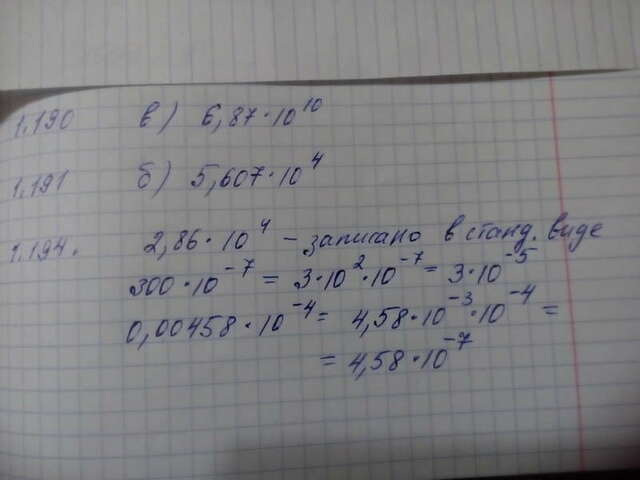 1.190 в) 6,87·10¹⁰
1.191 б) 5,607·10⁴
1.194. 2,86·10⁴ – записано в станд. виде
300·10⁻⁷ = 3·10²·10⁻⁷ = 3·10⁻⁵
0,00458·10⁻⁴ = 4,58·10⁻³·10⁻⁴ =
= 4,58·10⁻⁷